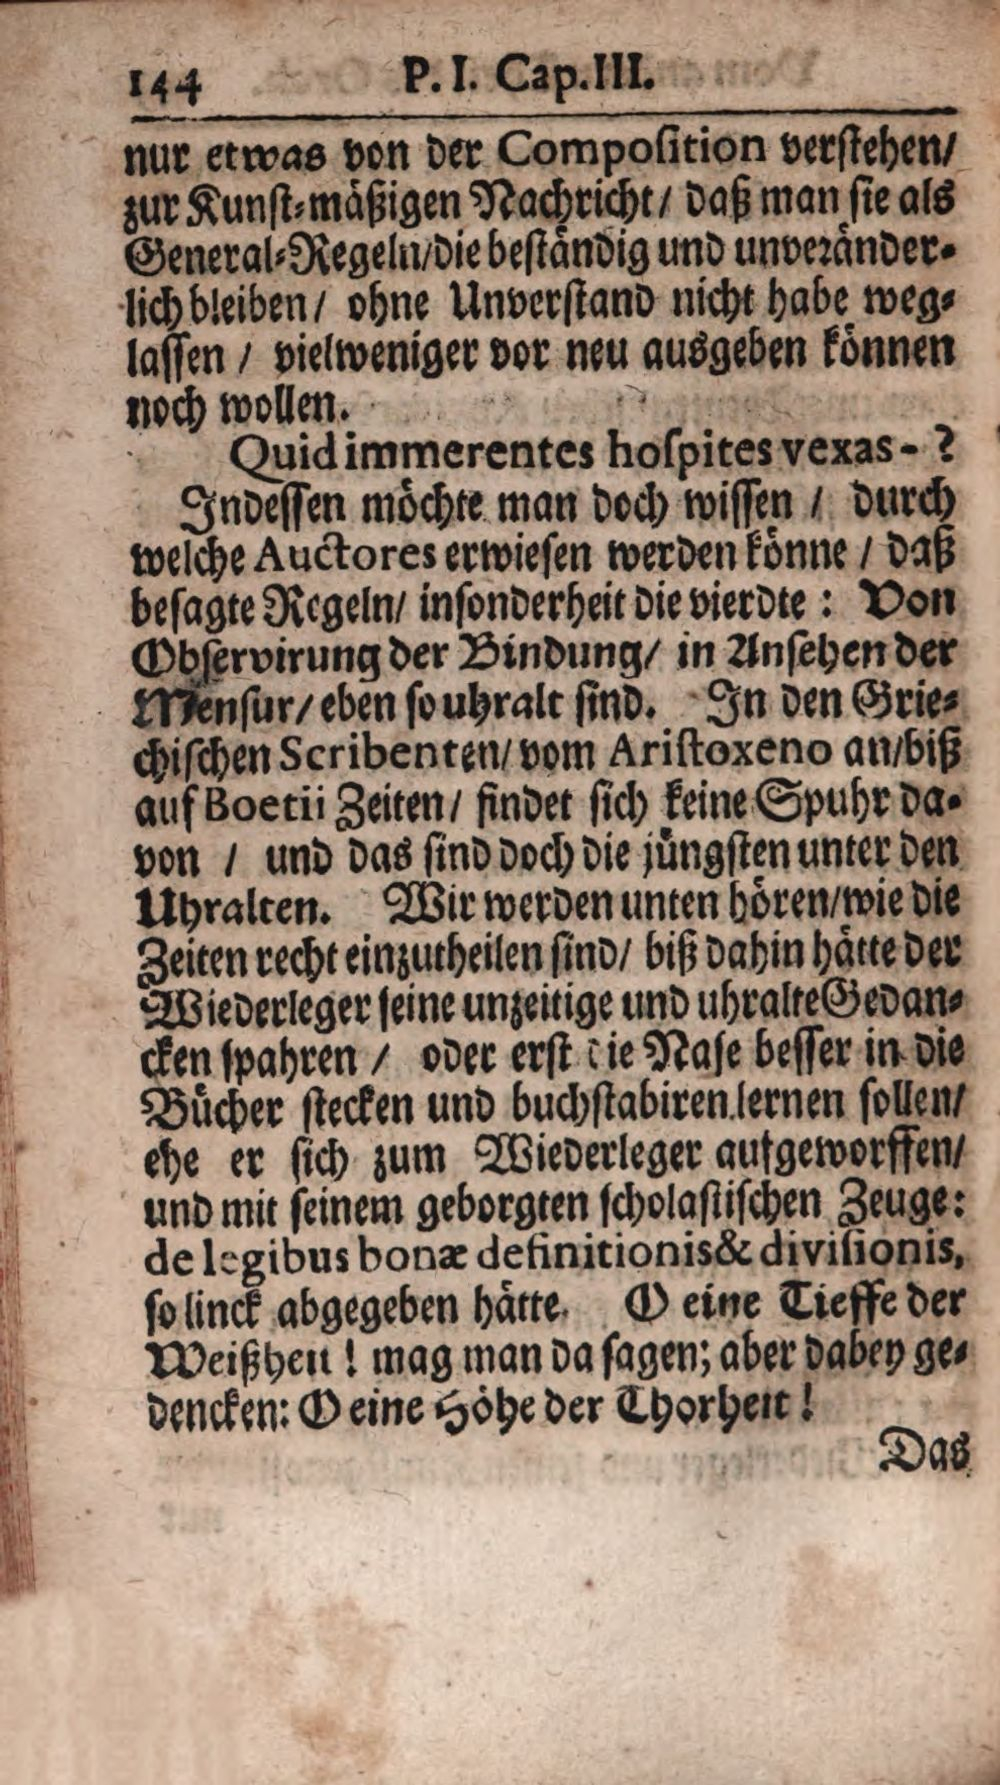 144 P. I. Cap. III.
nur etwas von der Compoſition verſtehen/
zur Kunſt⸗mäßigen Nachricht/ daß man ſie als
General⸗Regeln/die beſtändig und unveränder⸗
lich bleiben/ ohne Unverſtand nicht habe weg⸗
laſſen / vielweniger vor neu ausgeben können
noch wollen.
Quid immerentes hoſpites vexas - ?
Indeſſen möchte man doch wiſſen / durch
welche Auctores erwieſen werden könne / daß
beſagte Regeln/ inſonderheit die vierdte : Von
Obſervirung der Bindung/ in Anſehen der
Menſur/ eben ſo uhralt ſind. In den Grie⸗
chiſchen Scribenten/ vom Ariſtoxeno an/biß
auf Boetii Zeiten/ findet ſich keine Spuhr da⸗
von / und das ſind doch die jüngſten unter den
Uhralten. Wir werden unten hören/wie die
Zeiten recht einzutheilen ſind/ biß dahin hätte der
Wiederleger ſeine unzeitige und uhralte Gedan⸗
cken ſpahren / oder erſt die Naſe beſſer in die
Bücher ſtecken und buchſtabiren lernen ſollen/
ehe er ſich zum Wiederleger aufgeworffen/
und mit ſeinem geborgten ſcholaſtiſchen Zeuge:
de legibus bonæ definitionis & diviſionis,
ſo linck abgegeben hätte. O eine Tieffe der
Weißheit ! mag man da ſagen; aber dabey ge⸗
dencken: O eine Höhe der Thorheit !
Das